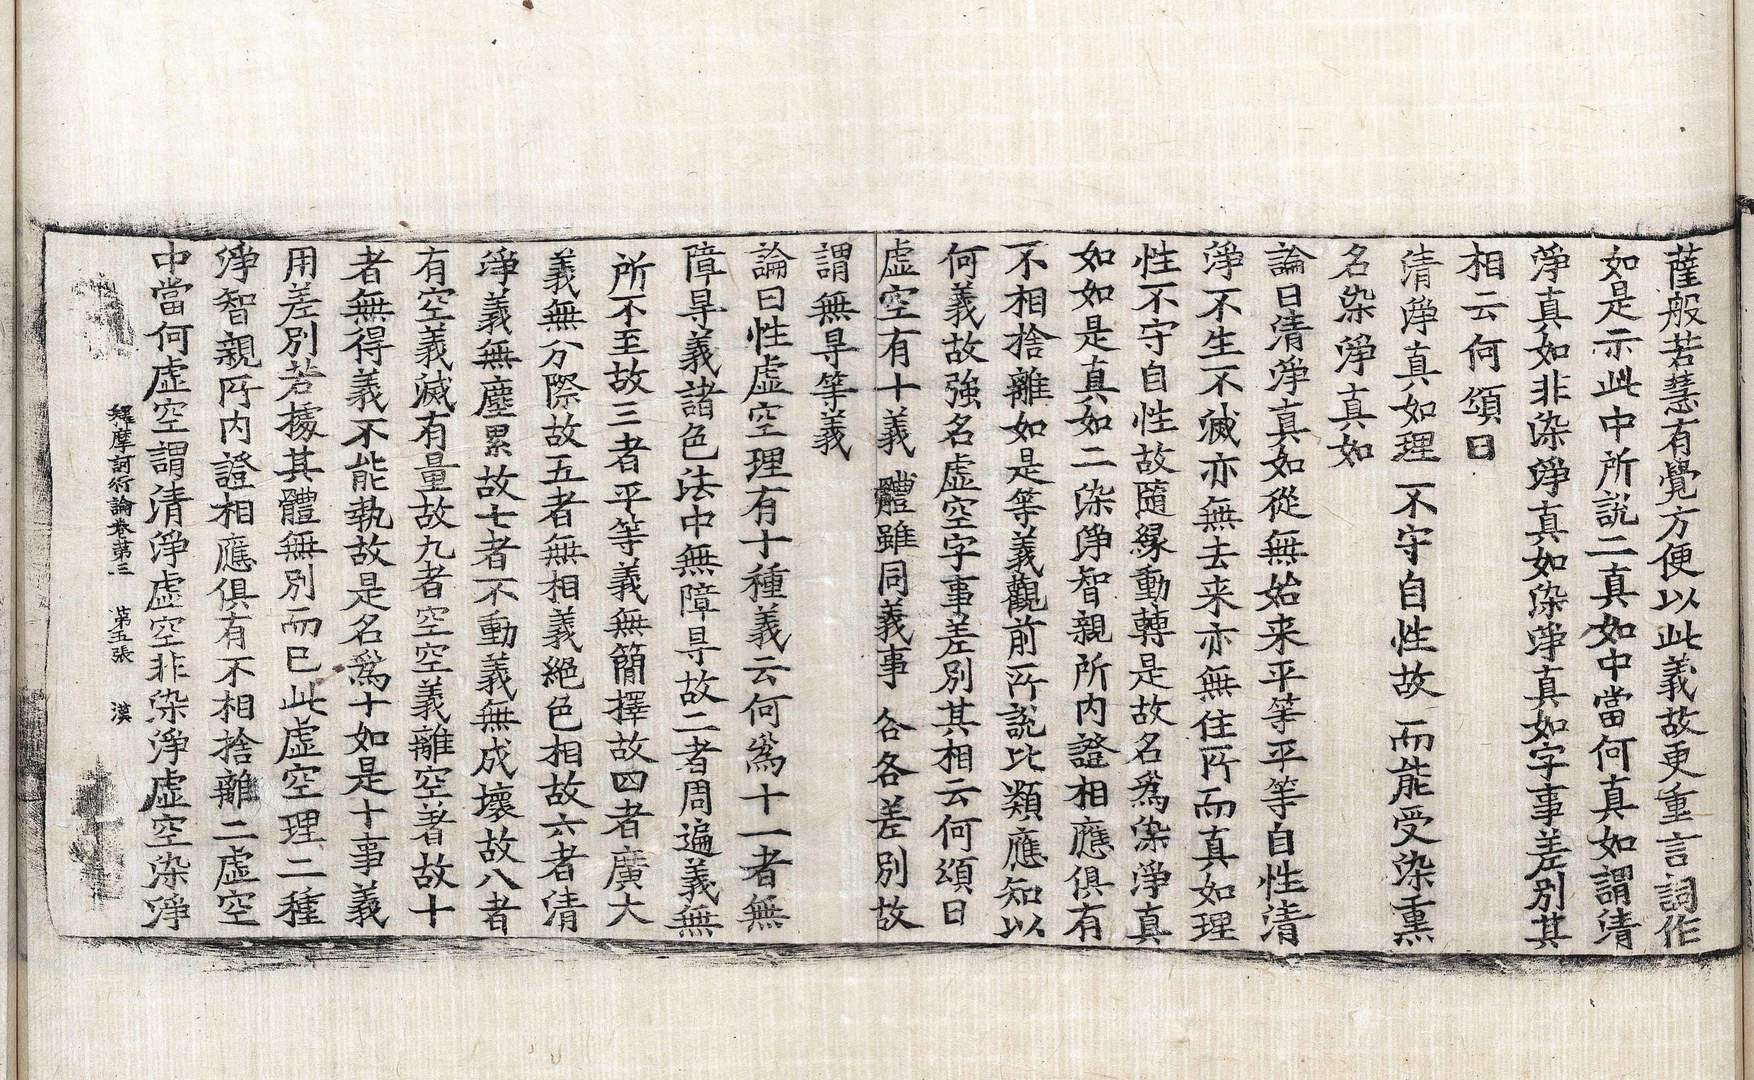 薩般若慧有覺方便以此義故更重言詞作
如是示此中所說二真如中當何真如謂清
淨真如非染淨真如染淨真如字事差別其
相云何頌曰
清淨真如理 不守自性故 而能受染熏
名染淨真如
論曰清淨真如從無始来平等平等自性清
淨不生不滅亦無去来亦無住所而真如理
性不守自性故隨緣動轉是故名爲染淨真
如如是真如二染淨智親所内證相應俱有
不相捨離如是等義觀前所說比類應知以
何義故強名虛空字事差別其相云何頌曰
虛空有十義 體雖同義事 各各差別故
謂無㝵等義
論曰性虛空理有十種義云何爲十一者無
障㝵義諸色法中無障㝵故二者周遍義無
所不至故三者平等義無簡擇故四者廣大
義無分際故五者無相義絕色相故六者清
淨義無塵累故七者不動義無成壞故八者
有空義滅有量故九者空空義離空著故十
者無得義不能執故是名爲十如是十事義
用差別若據其體無別而已此虛空理二種
淨智親所内證相應俱有不相捨離二虛空
中當何虛空謂清淨虛空非染淨虛空染淨
釋摩訶衍論卷第三 第五張 漢